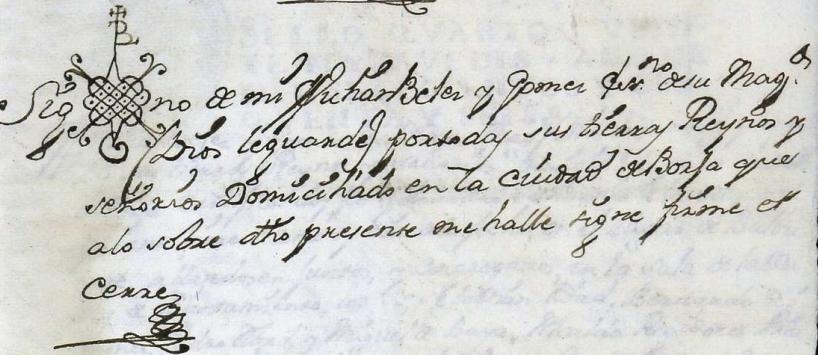 Sig no de mi Beler y Gomez Ess.no de su Mag.d
(Dios le guarde) por todas sus tierras Reynos y
señorios Domiciliado en la Ciudad de Borja que
alo sobre dho presente me halle signe firme et
Cerre